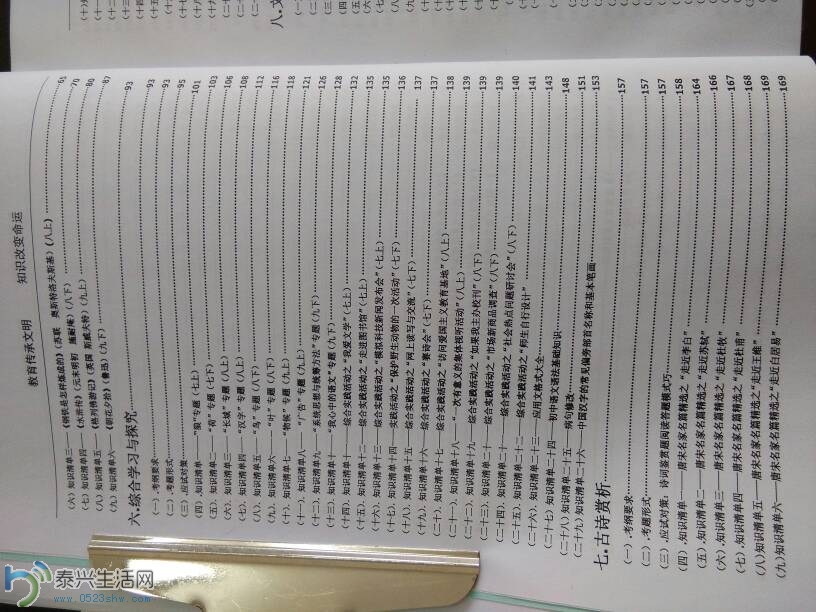 教育传承文明 知识改变命运
(六)知识清单三——《钢铁是怎样炼成的》(苏联 奥斯特洛夫斯基)(八上)……61
(七)知识清单四——《水浒传》(元末明初 施耐庵)(八下)……70
(八)知识清单五——《格列佛游记》(英国 斯威夫特)(九上)……80
(九)知识清单六——《朝花夕拾》(鲁迅)(九下)……87
六.综合学习与探究……93
(一).考纲要求……93
(二).考题形式……93
(三).应试对策……95
(四).知识清单一——"狼"专题(七上)……101
(五).知识清单二——"荷"专题(七下)……103
(六).知识清单三——"长城"专题(八上)……106
(七).知识清单四——"汉字"专题(八上)……108
(八).知识清单五——"鸟"专题(八下)……112
(九).知识清单六——"叶"专题(八下)……116
(十).知识清单七——"物候"专题(九上)……118
(十一).知识清单八——"广告"专题(九上)……121
(十二).知识清单九——"系统思想与统筹方法"专题(九下)……126
(十三).知识清单十——"我心中的语文"专题(九下)……128
(十四).知识清单十一——综合实践活动之"我爱文学"(七上)……132
(十五).知识清单十二——综合实践活动之"走进图书馆"(七上)……135
(十六).知识清单十三——综合实践活动之"模拟科技新闻发布会"(七上)……135
(十七).知识清单十四——实践活动之"保护野生动物的一次活动"(七下)……136
(十八).知识清单十五——综合实践活动之"网上读写与交流"(七下)……137
(十九).知识清单十六——综合实践活动之"赛诗会"(七下)……137
(二十).知识清单十七——综合实践活动之"访问爱国主义教育基地"(八上)……138
(二十一).知识清单十八——"一次有意义的集体视听活动"(八上)……139
(二十二).知识清单十九——综合实践活动之"如果我主办校刊"(八下)……139
(二十三).知识清单二十——综合实践活动之"市场新商品调查"(八下)……139
(二十四).知识清单二十一——综合实践活动之"社会热点问题研讨会"(八下)……140
(二十五).知识清单二十二——综合实践活动之"师生自行设计"……141
(二十六).知识清单二十三——应用文格式大全……143
(二十七)知识清单二十四 初中语文语法基础知识……148
(二十八)知识清单二十五 病句修改……151
(二十九)知识清单二十六 中国汉字的常见偏旁部首名称和基本笔画……153
七.古诗赏析……157
(一).考纲要求……157
(二).考题形式……157
(三).应试对策:诗词鉴赏题阅读答题模式巧……158
(四).知识清单一——唐宋名家名篇精选之"走近李白"……164
(五).知识清单二——唐宋名家名篇精选之"走近苏轼"……166
(六).知识清单三——唐宋名家名篇精选之"走近杜牧"……167
(七).知识清单四——唐宋名家名篇精选之"走近杜甫"……168
(八)知识清单五——唐宋名家名篇精选之"走近王维"……169
(九)知识清单六——唐宋名家名篇精选之"走近白居易"……169
泰兴生活网
www.0523shw.com